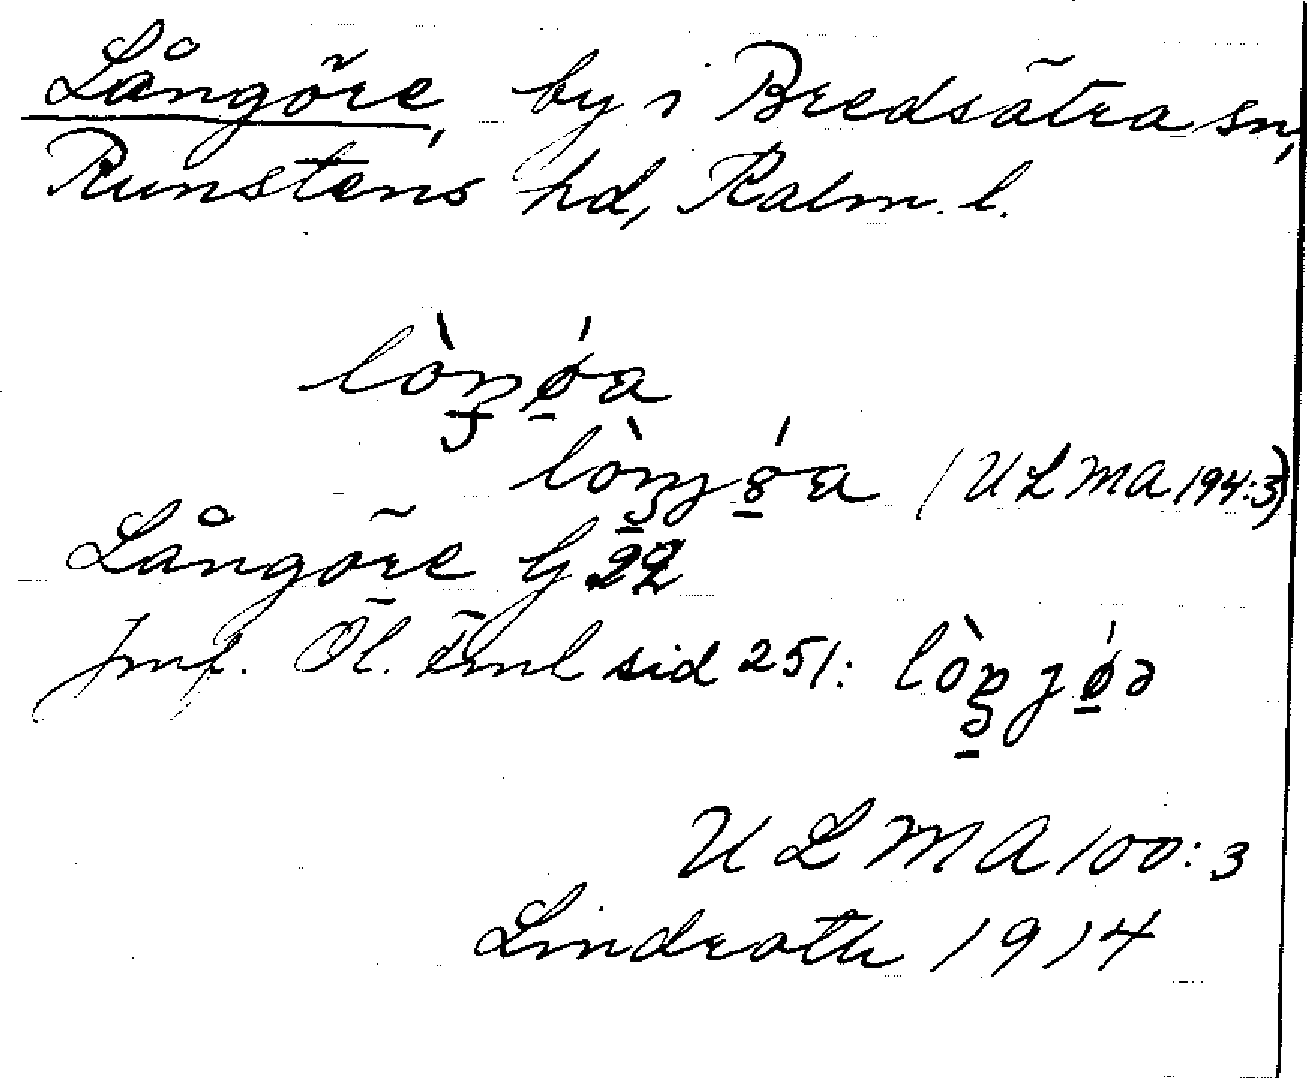 Långöre, by i Bredsätra sn,
Runstens hd, Kalm. l.
lòŋǿa
lòŋȷǿa (ULMA 194:3)
Långöre G 22
Jmf. Öl. Fml sid 251: lòŋȷǿə
ULMA 100:3
Lindroth 1914